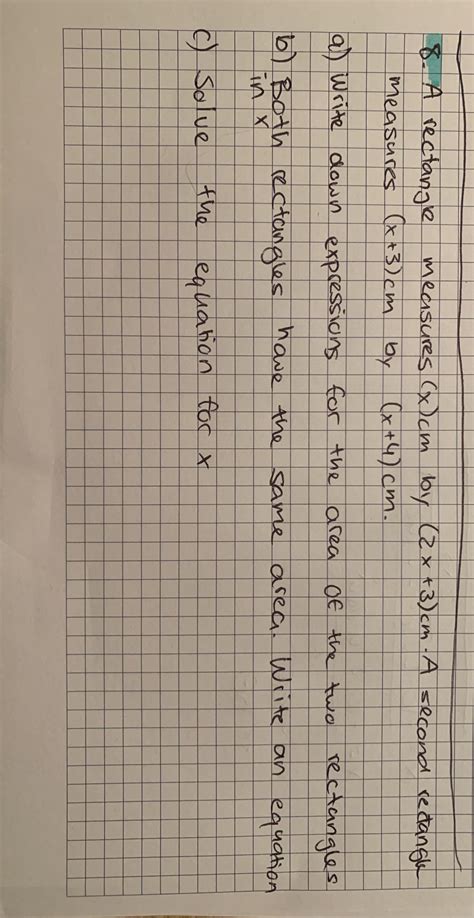 8. A rectangle measures (x)cm by (2x+3)cm. A second rectangle
measures (x+3)cm by (x+4)cm.
a) Write down expressions for the area of the two rectangles
b) Both rectangles have the same area. Write an equation
in x
c) Solve the equation for x